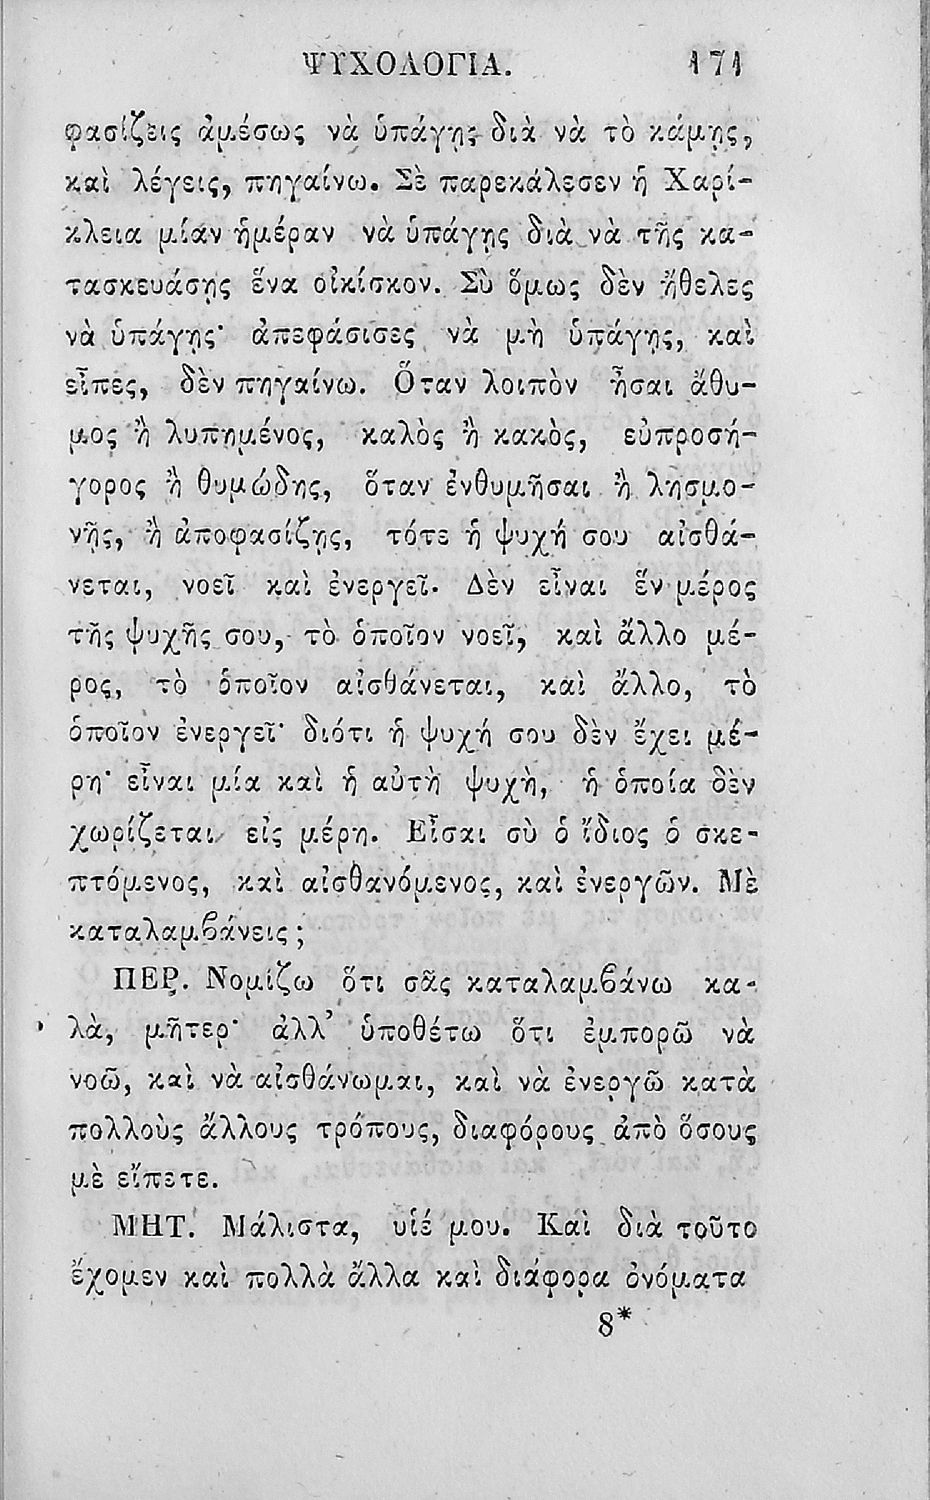 ΨΥΧΟΛΟΓΙΑ. 171
φασίζεις ἀμέσως νὰ ὑπάγῃς διὰ νὰ τὸ κάμῃς,
καὶ λέγεις, πηγαίνω. Σὲ παρεκάλεσεν ἡ Χαρί-
κλεια μίαν ἡμέραν νὰ ὑπάγῃς διὰ νὰ τῆς κα-
τασκευάσῃς ἕνα οἰκίσκον. Σὺ ὅμως δὲν ἤθελες
νὰ ὑπάγῃς· ἀπεφάσισες νὰ μὴ ὑπάγῃς, καὶ
εἶπες, δὲν πηγαίνω. Ὅταν λοιπὸν ἦσαι ἄθυ-
μος ἢ λυπημένος, καλὸς ἢ κακὸς, εὐπροσή-
γορος ἢ θυμώδης, ὅταν ἐνθυμῆσαι ἢ λησμο-
νῇς, ἢ ἀποφασίζῃς, τότε ἡ ψυχή σου αἰσθά-
νεται, νοεῖ καὶ ἐνεργεῖ. Δὲν εἶναι ἓν μέρος
τῆς ψυχῆς σου, τὸ ὁποῖον νοεῖ, καὶ ἄλλο μέ-
ρος, τὸ ὁποῖον αἰσθάνεται, καὶ ἄλλο, τὸ
ὁποῖον ἐνεργεῖ· διότι ἡ ψυχή σου δὲν ἔχει μέ-
ρη· εἶναι μία καὶ ἡ αὐτὴ ψυχὴ, ἡ ὁποία δὲν
χωρίζεται εἰς μέρη. Εἶσαι σὺ ὁ ἴδιος ὁ σκε-
πτόμενος, καὶ αἰσθανόμενος, καὶ ἐνεργῶν. Μὲ
καταλαμβάνεις;
ΠΕΡ. Νομίζω ὅτι σᾶς καταλαμβάνω κα-
λὰ, μῆτερ· ἀλλ’ ὑποθέτω ὅτι ἐμπορῶ νὰ
νοῶ, καὶ νὰ αἰσθάνωμαι, καὶ νὰ ἐνεργῶ κατὰ
πολλοὺς ἄλλους τρόπους, διαφόρους ἀπὸ ὅσους
μὲ εἴπετε.
ΜΗΤ. Μάλιστα, υἱέ μου. Καὶ διὰ τοῦτο
ἔχομεν καὶ πολλὰ ἄλλα καὶ διάφορα ὀνόματα
8*